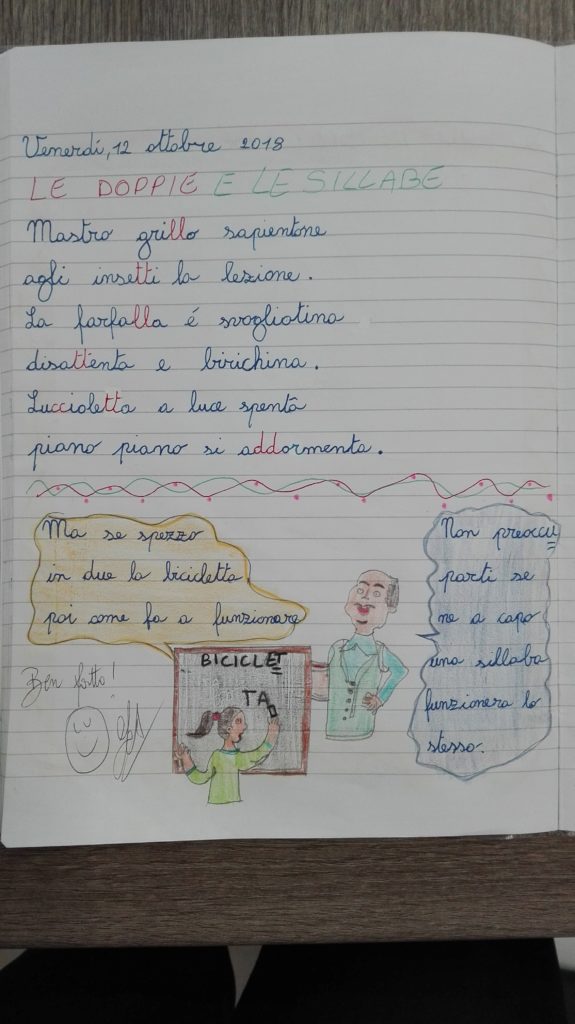 Venerdí, 12 ottobre 2018
LE DOPPIE E LE SILLABE
Mastro grillo sapientone
agli insetti la lezione.
La farfalla é svogliatina
disattenta e birichina.
Luccioletta a luce spenta
piano piano si addormenta.
Ma se spezzo
in due la bicicletta
poi come fa a funzionare
Non preoccu
parti se
ne a capo
una sillaba
funzionera lo
stesso.
BICICLET
TA
Ben fatto!